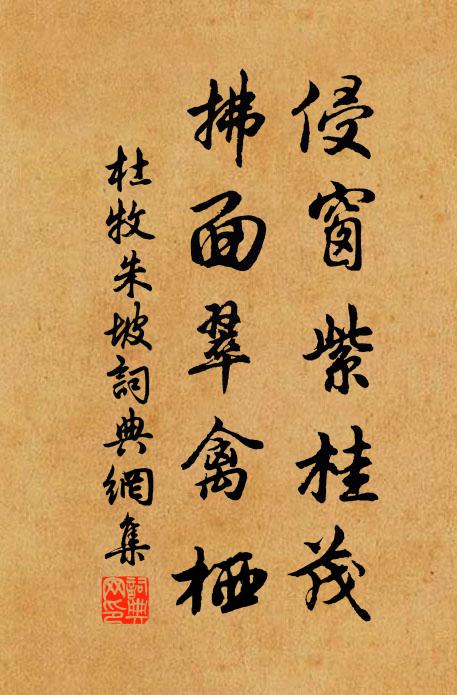 侵窗紫桂茂
拂面翠禽栖
杜牧朱坡詞典網集
詞典网印